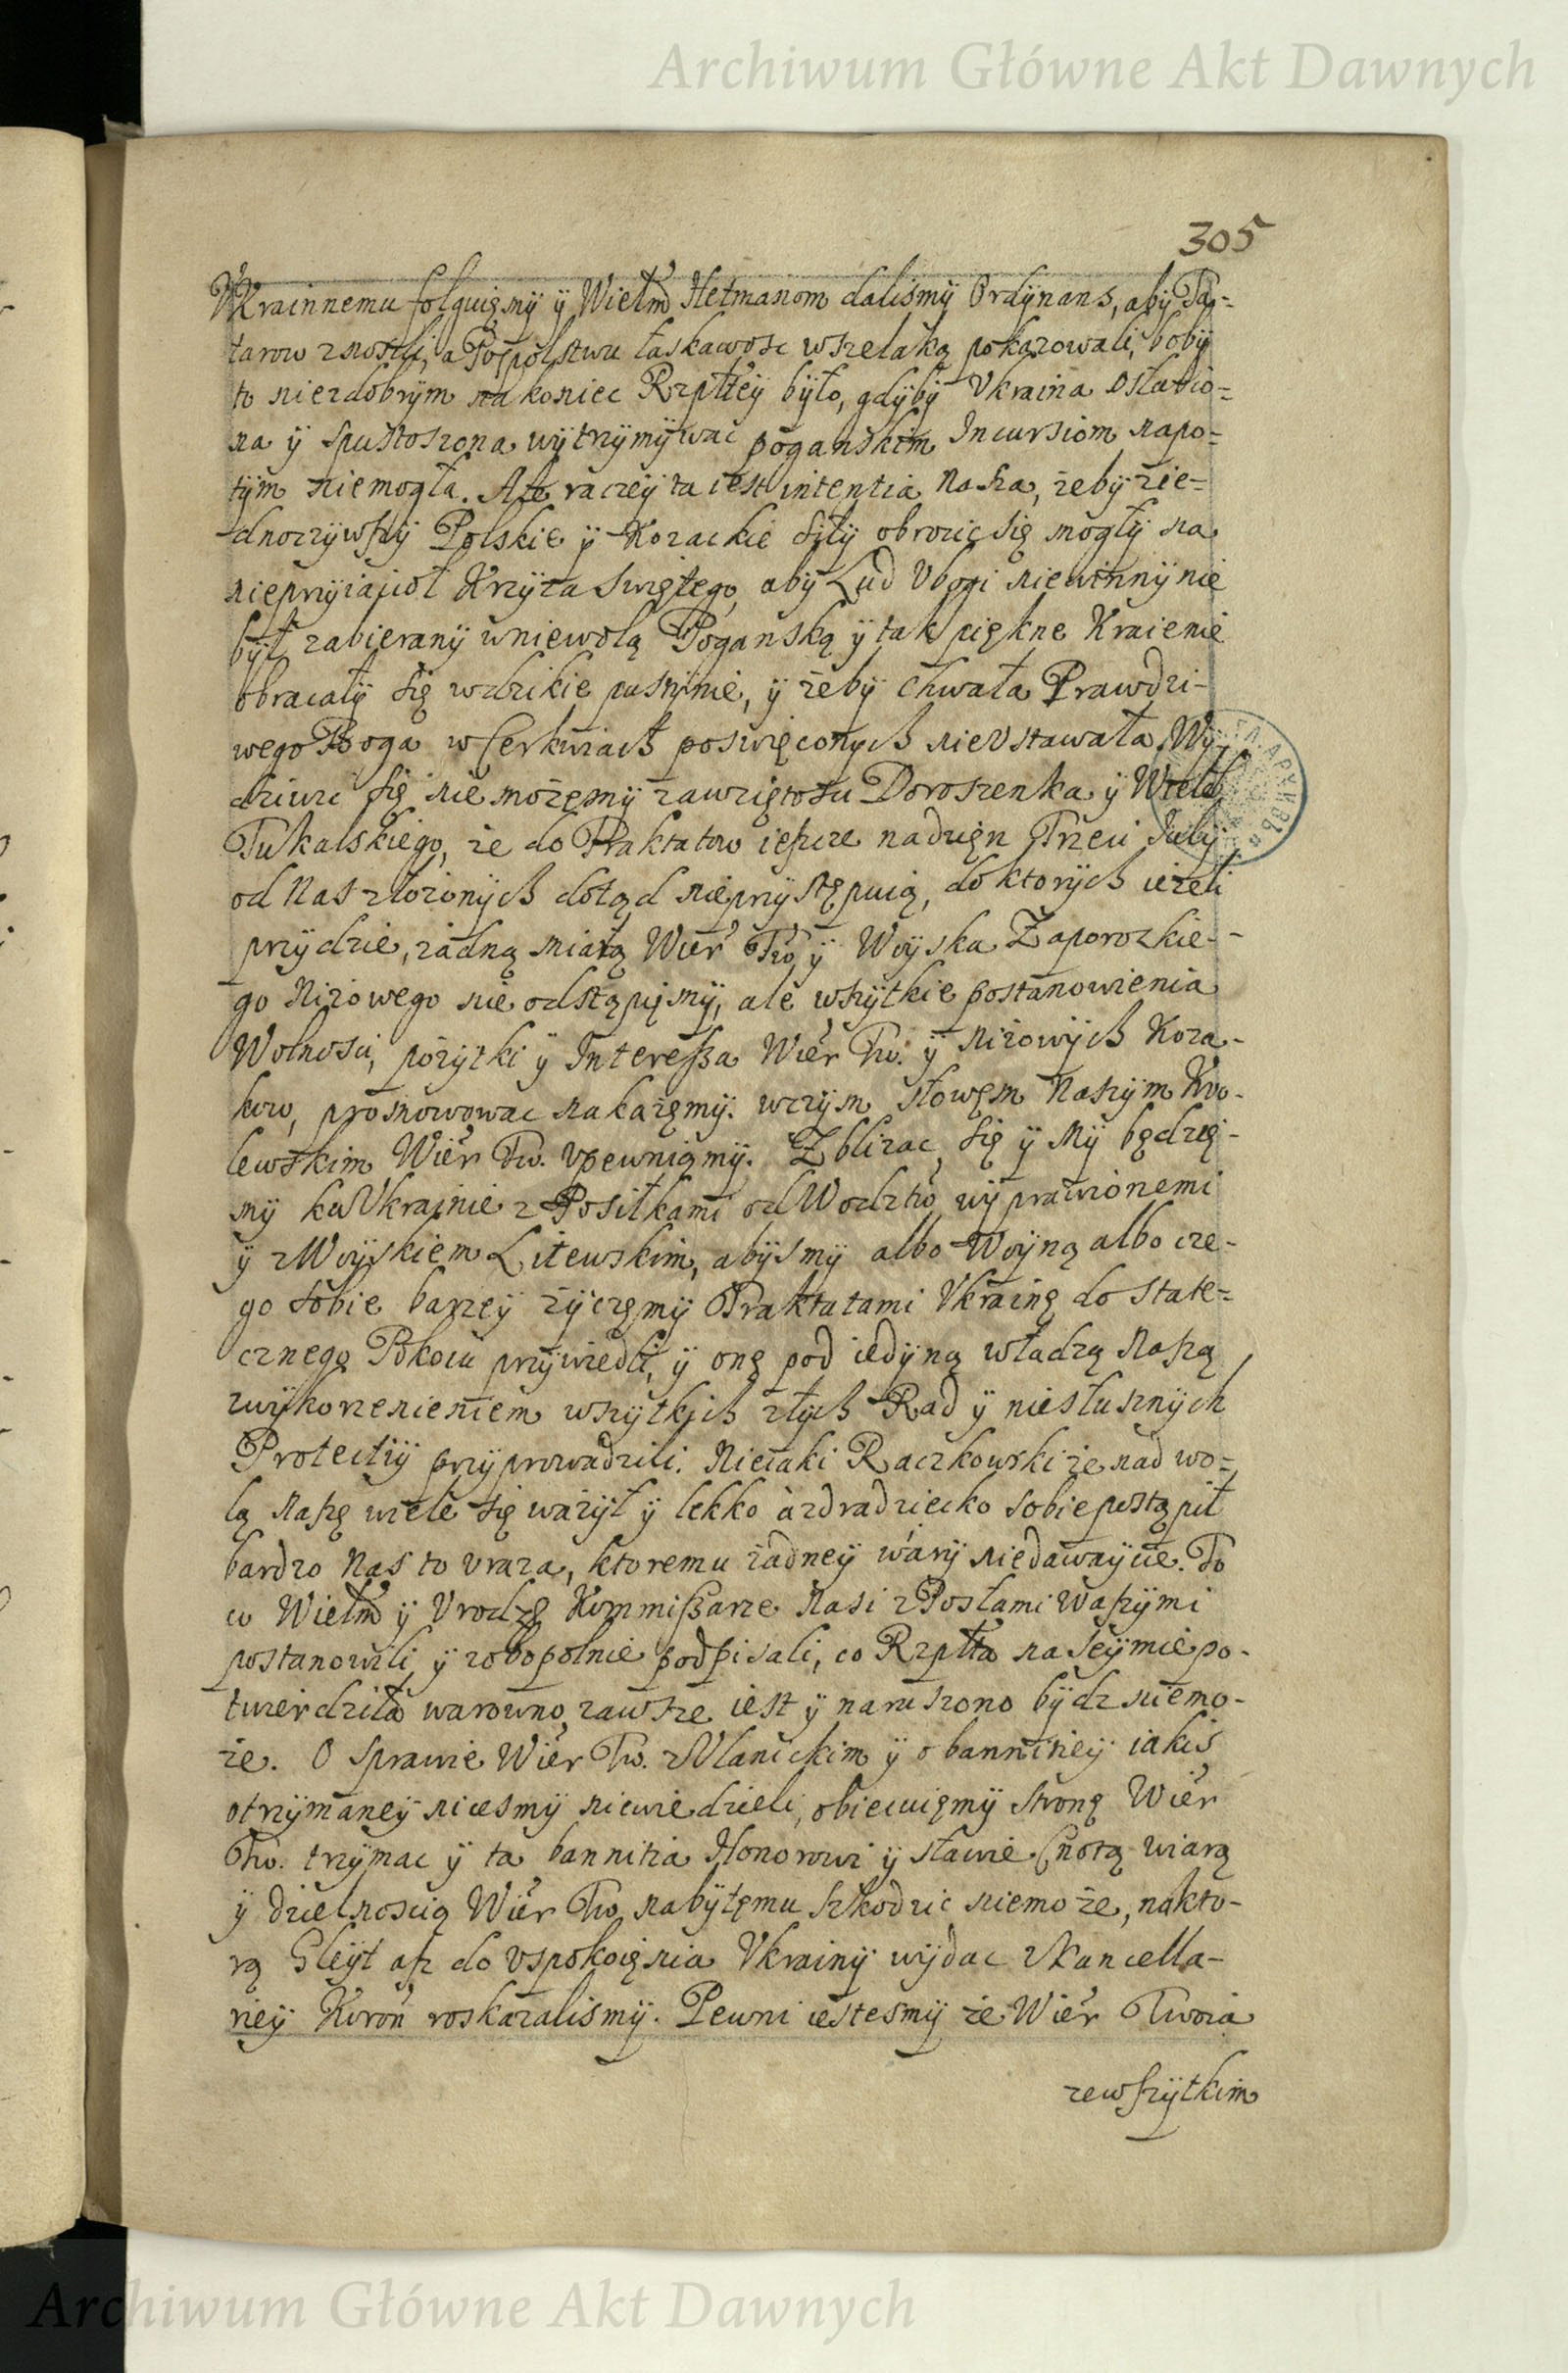 Archiwum Główne Akt Dawnych
305
Vkrainnemu folguięmÿ ÿ Wielm Hetmanom dalismÿ Ordÿnans, abÿ Ta-
tarow znosili, a Pospolstwu łaskawosc wszelaką pokazowali, bobÿ
to niezdobrÿm na koniec Rzplteÿ bÿło, gdÿbÿ Vkraina osłabio=
na ÿ spustoszona wÿtrzÿmÿwac poganskim Incursiom napo=
tÿm niemogła. Ale raczeÿ ta iest intentia Nasza, żebÿ zie=
dnoczÿwszÿ Polskie ÿ Kozackie siłÿ obrocic się mogłÿ na
nieprzÿiacioł Krzÿża Swiętego, abÿ Lud Vbogi niewinnÿ nie
bÿł zabieranÿ w niewolą Poganską ÿ tak piękne Kraie nie
obracałÿ się w dzikie pustÿnie, ÿ żebÿ Chwała Prawdzi-
wego Boga w Cerkwiach poswięconÿch nie Vstawała. Wÿ-
dziwic się nie możęmÿ zawziętosci Doroszenka ÿ Wieleb
Tukalskiego, że do Traktatow ieszcze na dzięn Trzeci Julÿ
od Nas złożonÿch dotąd nie przÿstępuią, do ktorÿch ieżeli
przÿdzie, żadną miarą Wier Tw. ÿ Woÿska Zaporozkie-
go Niżowego nie odstąpięmÿ, ale wszÿtkie postanowienia
Wolnosci, pożÿtki ÿ Interessa Wier Tw. ÿ Niżowÿch Koza-
kow, promowowac nakażęmÿ. w czÿm słowęm Naszÿm Kro-
lewskim Wier Tw. Vpewniamÿ. Zblizac się ÿ Mÿ będzię-
mÿ ku Vkrainie z Posiłkami od Wodzow wÿprawionemi
ÿ z Woÿskiem Litewskim, abÿsmÿ albo Woÿną albo cze-
go sobie barzeÿ żÿczęmÿ Traktatami Vkrainę do state=
cznego Pokoiu przÿwiedli, ÿ onę pod iedÿną władzą Naszą,
z wÿkorzenieniem wszÿtkich złÿch Rad ÿ niesłusznÿch
Protectiÿ przÿprowadzili. Nieiaki Raczkowski że nad wo=
lą Naszę wiele się ważÿł ÿ lekko a zdradziecko sobie postąpił
bardzo Nas to vraza, ktoremu żadneÿ warÿ nie dawaÿcie. To
co Wielm ÿ Vrodz Kommissarze Nasi z Posłami Waszÿmi
postanowili ÿ zobopolnie podpisali, co Rzplta na Seÿmie po-
twierdziła warowno zawsze iest ÿ naruszono bÿdz niemo-
że. O sprawie Wier Tw. z Vlanickim ÿ o bannitieÿ iakis
otrzÿmaneÿ niesmÿ niewiedzieli, obiecuięmÿ stronę Wier
Tw. trzÿmac ÿ ta bannitia Honorowi ÿ sławie Cnotą wiarą
ÿ dzielnoscią Wier Tw. nabÿtęmu szkodzic niemoże, na kto-
rą Gleÿt asz do Vspokoięnia Vkrainÿ wÿdac z Kancella-
rieÿ Koron roskazalismÿ. Pewni iestesmÿ że Wier Twoia
zewszÿtkim
Archiwum Główne Akt Dawnych